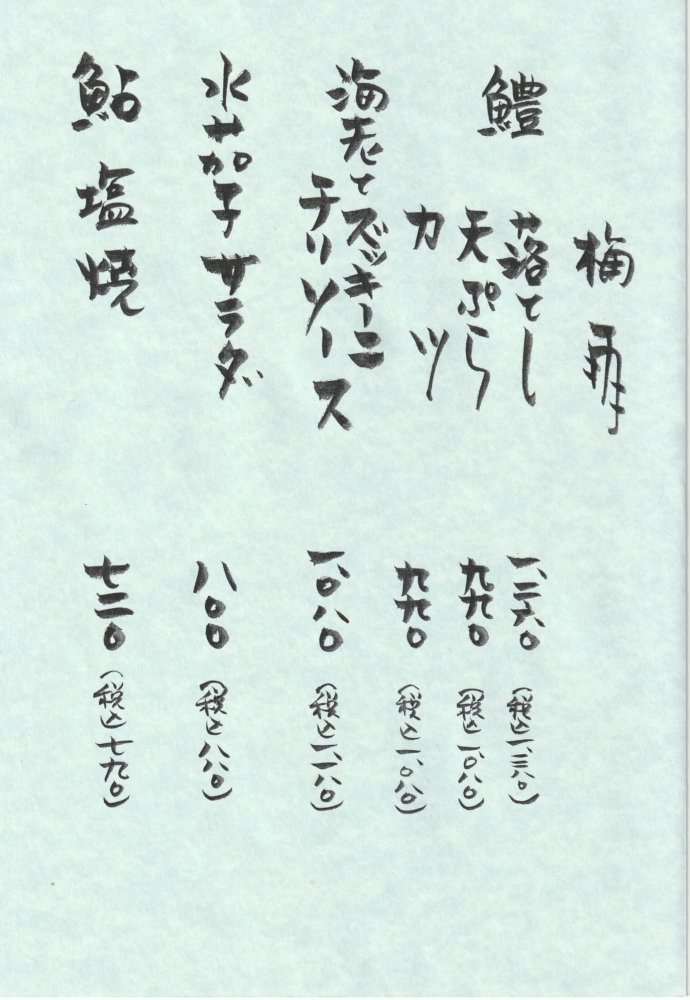 梅雨
鱧 落とし 一、二六〇 (税込一、三八〇)
天ぷら 九九〇 (税込一、〇八〇)
カツ 九九〇 (税込一、〇八〇)
海老とズッキーニ
チリソース 一、〇八〇 (税込一、一八〇)
水茄子サラダ 八〇〇 (税込八八〇)
鮎塩焼 七二〇 (税込七九〇)